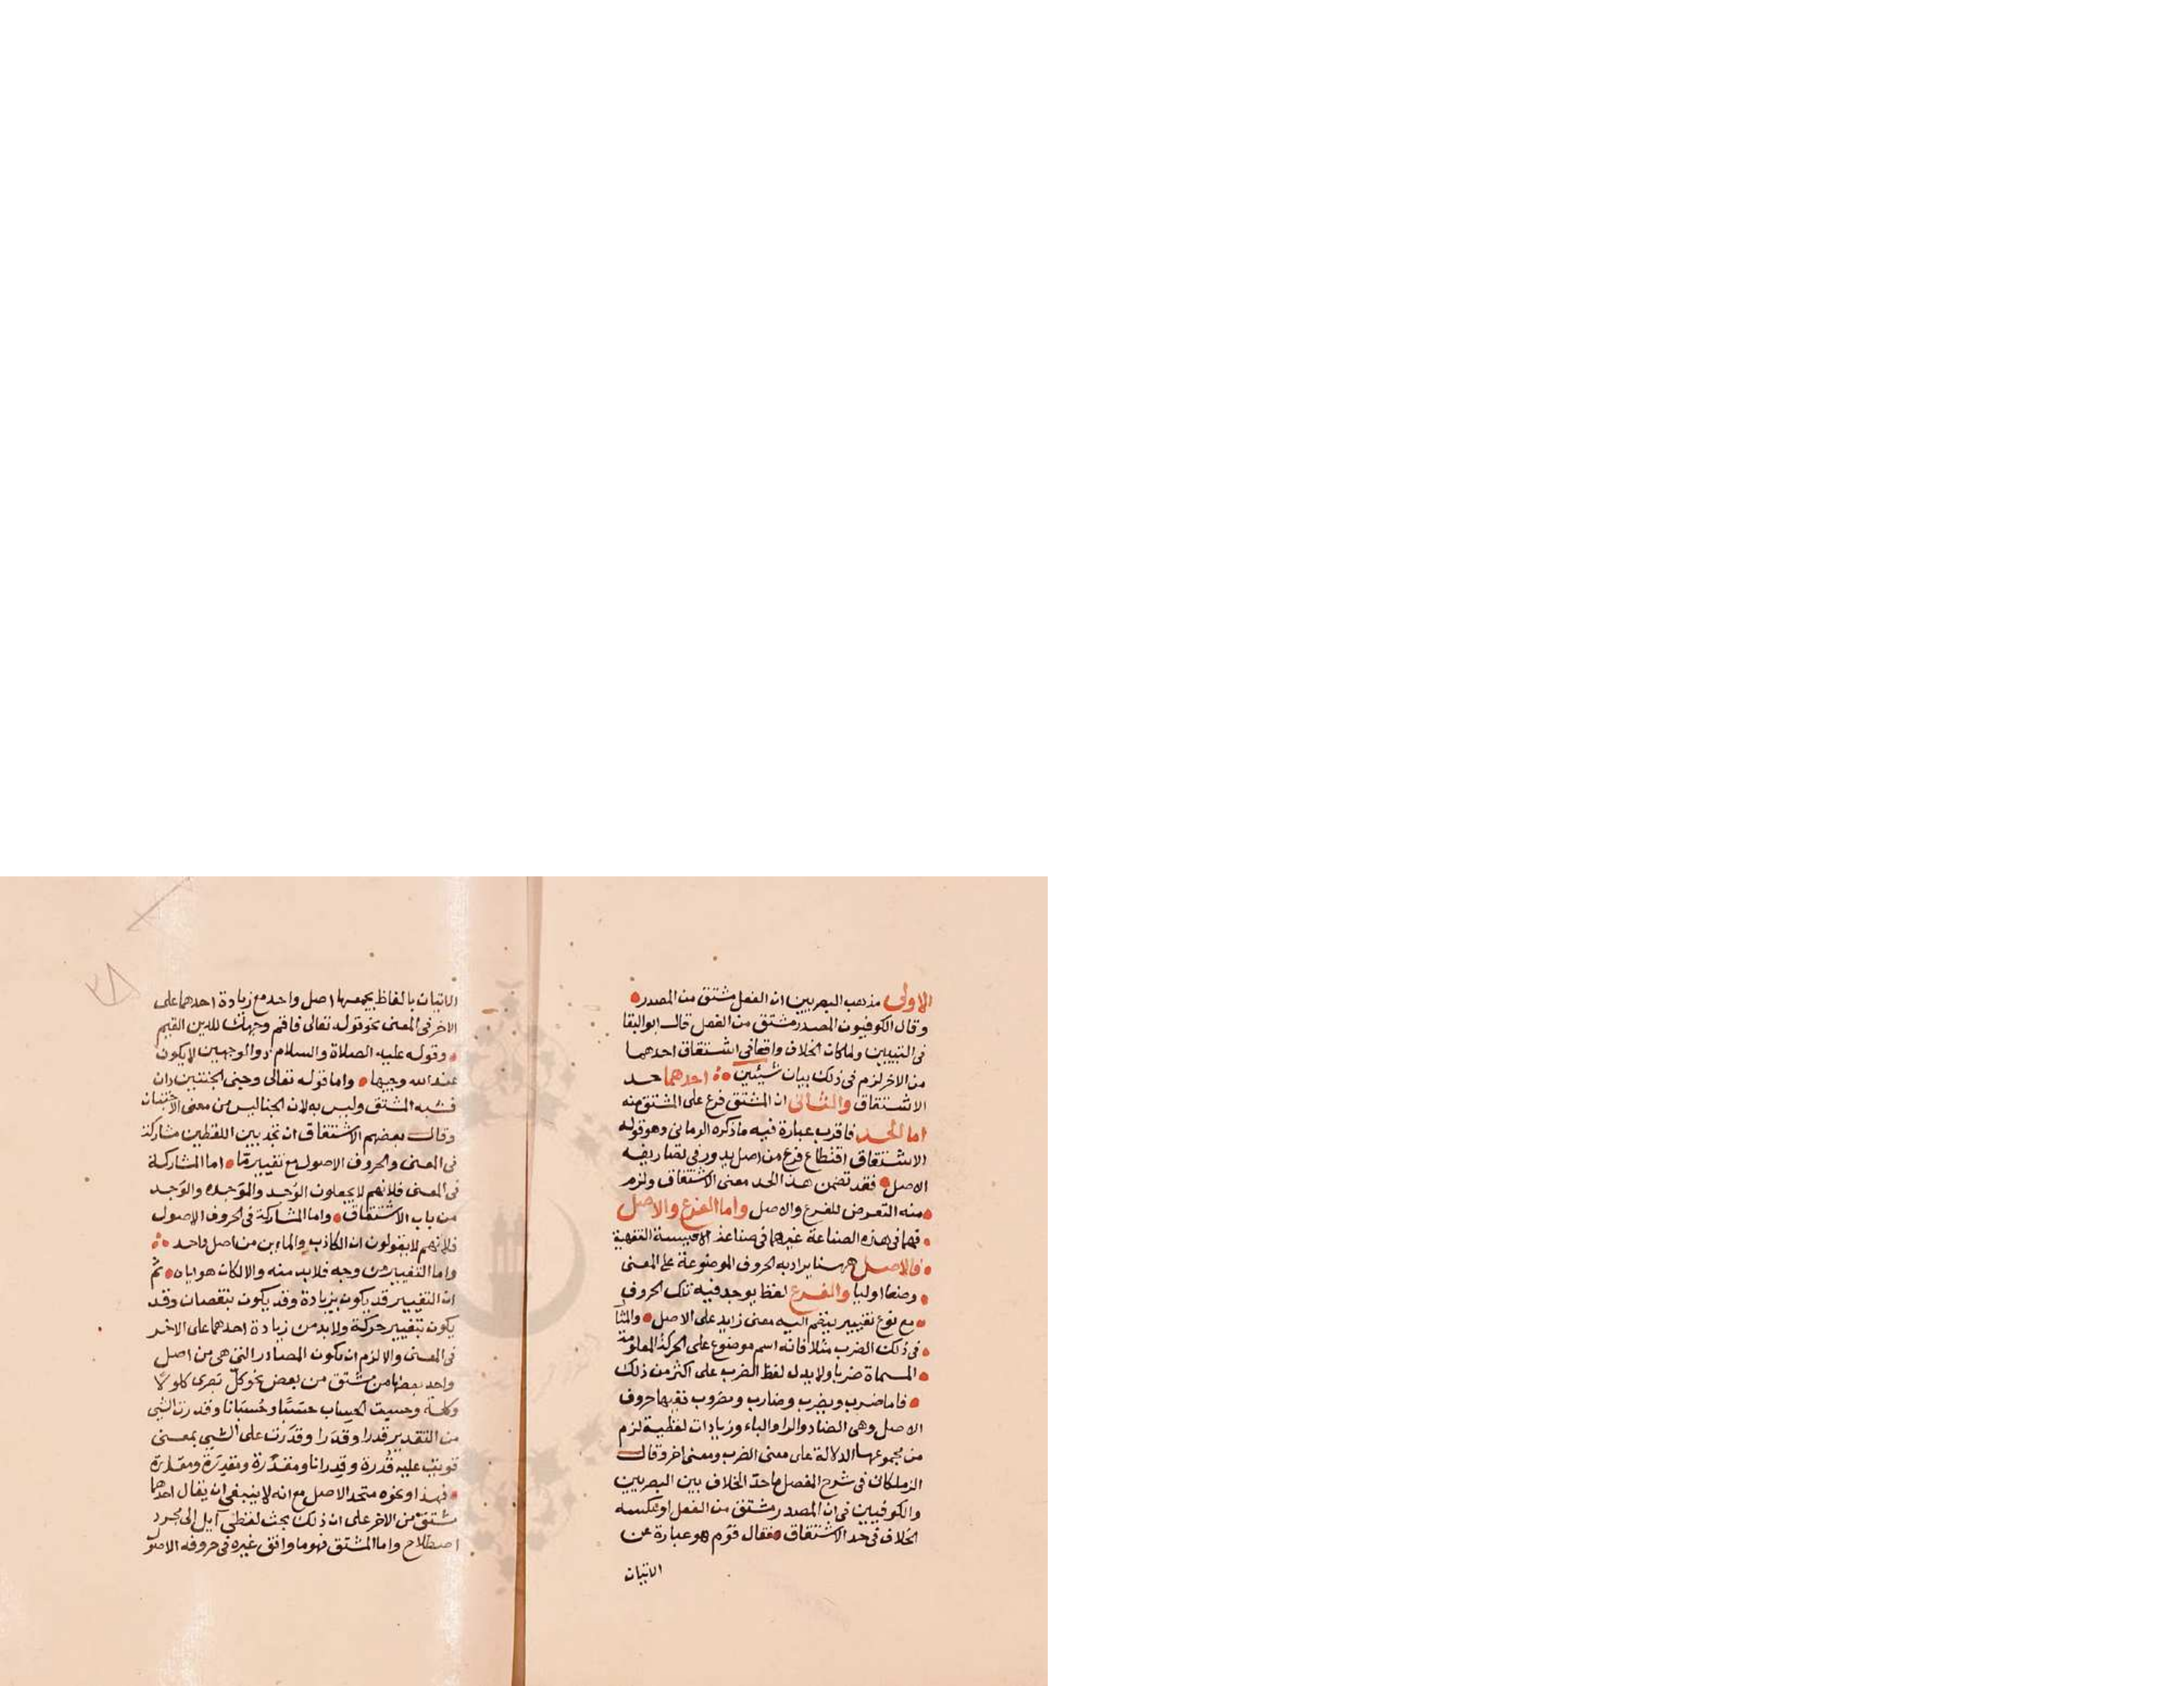 الاولى مذهب البصريين ان الفعل مشتق من المصدر
وقال الكوفيون المصدر مشتق من الفعل قال ابو البقا
فى التبيين ولما كان الخلاف واقعا فى اشتقاق احدهما
من الاخر لزم فى ذلك بيان شيئين احدهما حد
الاشتقاق والثانى ان المشتق فرع على المشتق منه
اما الحد فاقرب عبارة فيه ما ذكره الرمانى وهو قوله
الاشتقاق اقتطاع فرع من اصل يدور فى تصاريفه
الاصل فقد تضمن هذا الحد معنى الاشتقاق ولزم
منه التعرض للفرع والاصل واما الفرع والاصل
فهما فى هذه الصناعة غيرهما فى صناعة الاقيسة الفقهية
فالاصل ههنا يراد به الحروف الموضوعة على المعنى
وضعا اوليا والفرع لفظ يوجد فيه تلك الحروف
مع نوع تغيير ينضم اليه معنى زايد على الاصل والمثا
فى ذلك الضرب مثلا فانه اسم موضوع على الحركة المعلومة
المسماة ضربا ولا يدل لفظ الضرب على اكثر من ذلك
فاما ضرب ويضرب وضارب ومضروب ففيها حروف
الاصل وهى الضاد والرا والباء وزيادات لفظية لزم
من مجموعها الدلالة على معنى الضرب ومعنى اخر وقال
الزملكانى فى شرح المفصل ماخذ الخلاف بين البصريين
والكوفيين فى ان المصدر مشتق من الفعل او عكسه
الخلاف فى حد الاشتقاق فقال قوم هو عبارة عن
الاتيان
الاتيان بالفاظ يجمعها اصل واحد مع زيادة احدهما على
الاخر فى المعنى نحو قوله تعالى فاقم وجهك للدين القيم
وقوله عليه الصلاة والسلام ذو الوجهين لا يكون
عند الله وجيها واما قوله تعالى وجنى الجنتين دان
فشبه المشتق وليس به لان الجنا ليس من معنى الاجتنان
وقال بعضهم الاشتقاق ان تجد بين اللفظين مشاركة
فى المعنى والحروف الاصول مع تغيير ما اما المشاركة
فى المعنى فلانهم لا يجعلون الوجد والموجده والوجد
من باب الاشتقاق واما المشاركة فى الحروف الاصول
فلانهم لا يقولون ان الكاذب والماين من اصل واحد
واما التغيير من وجه فلا بد منه والا لكان هو اياه ثم
ان التغيير قد يكون بزيادة وقد يكون بنقصان وقد
يكون بتغيير حركة ولا بد من زيادة احدهما على الاخر
فى المعنى والا لزم ان يكون المصادر التى هى من اصل
واحد بعضها من مشتق من بعض نحو كل بصرى كلولا
وكلة وحسبت الحساب حسبا وحسبانا وقدرت الشى
من التقدير قدرا وقدرا وقدرت على الشى بمعنى
قويت عليه قدرة وقدرانا ومقدرة ومقدرة ومقدرة
فهذا ونحوه متحد الاصل مع انه لا ينبغى ان يقال احدهما
مشتق من الاخر على ان ذلك بحث لفظى آيل الى مجرد
اصطلاح واما المشتق فهو ما وافق غيره فى حروفه الاصو